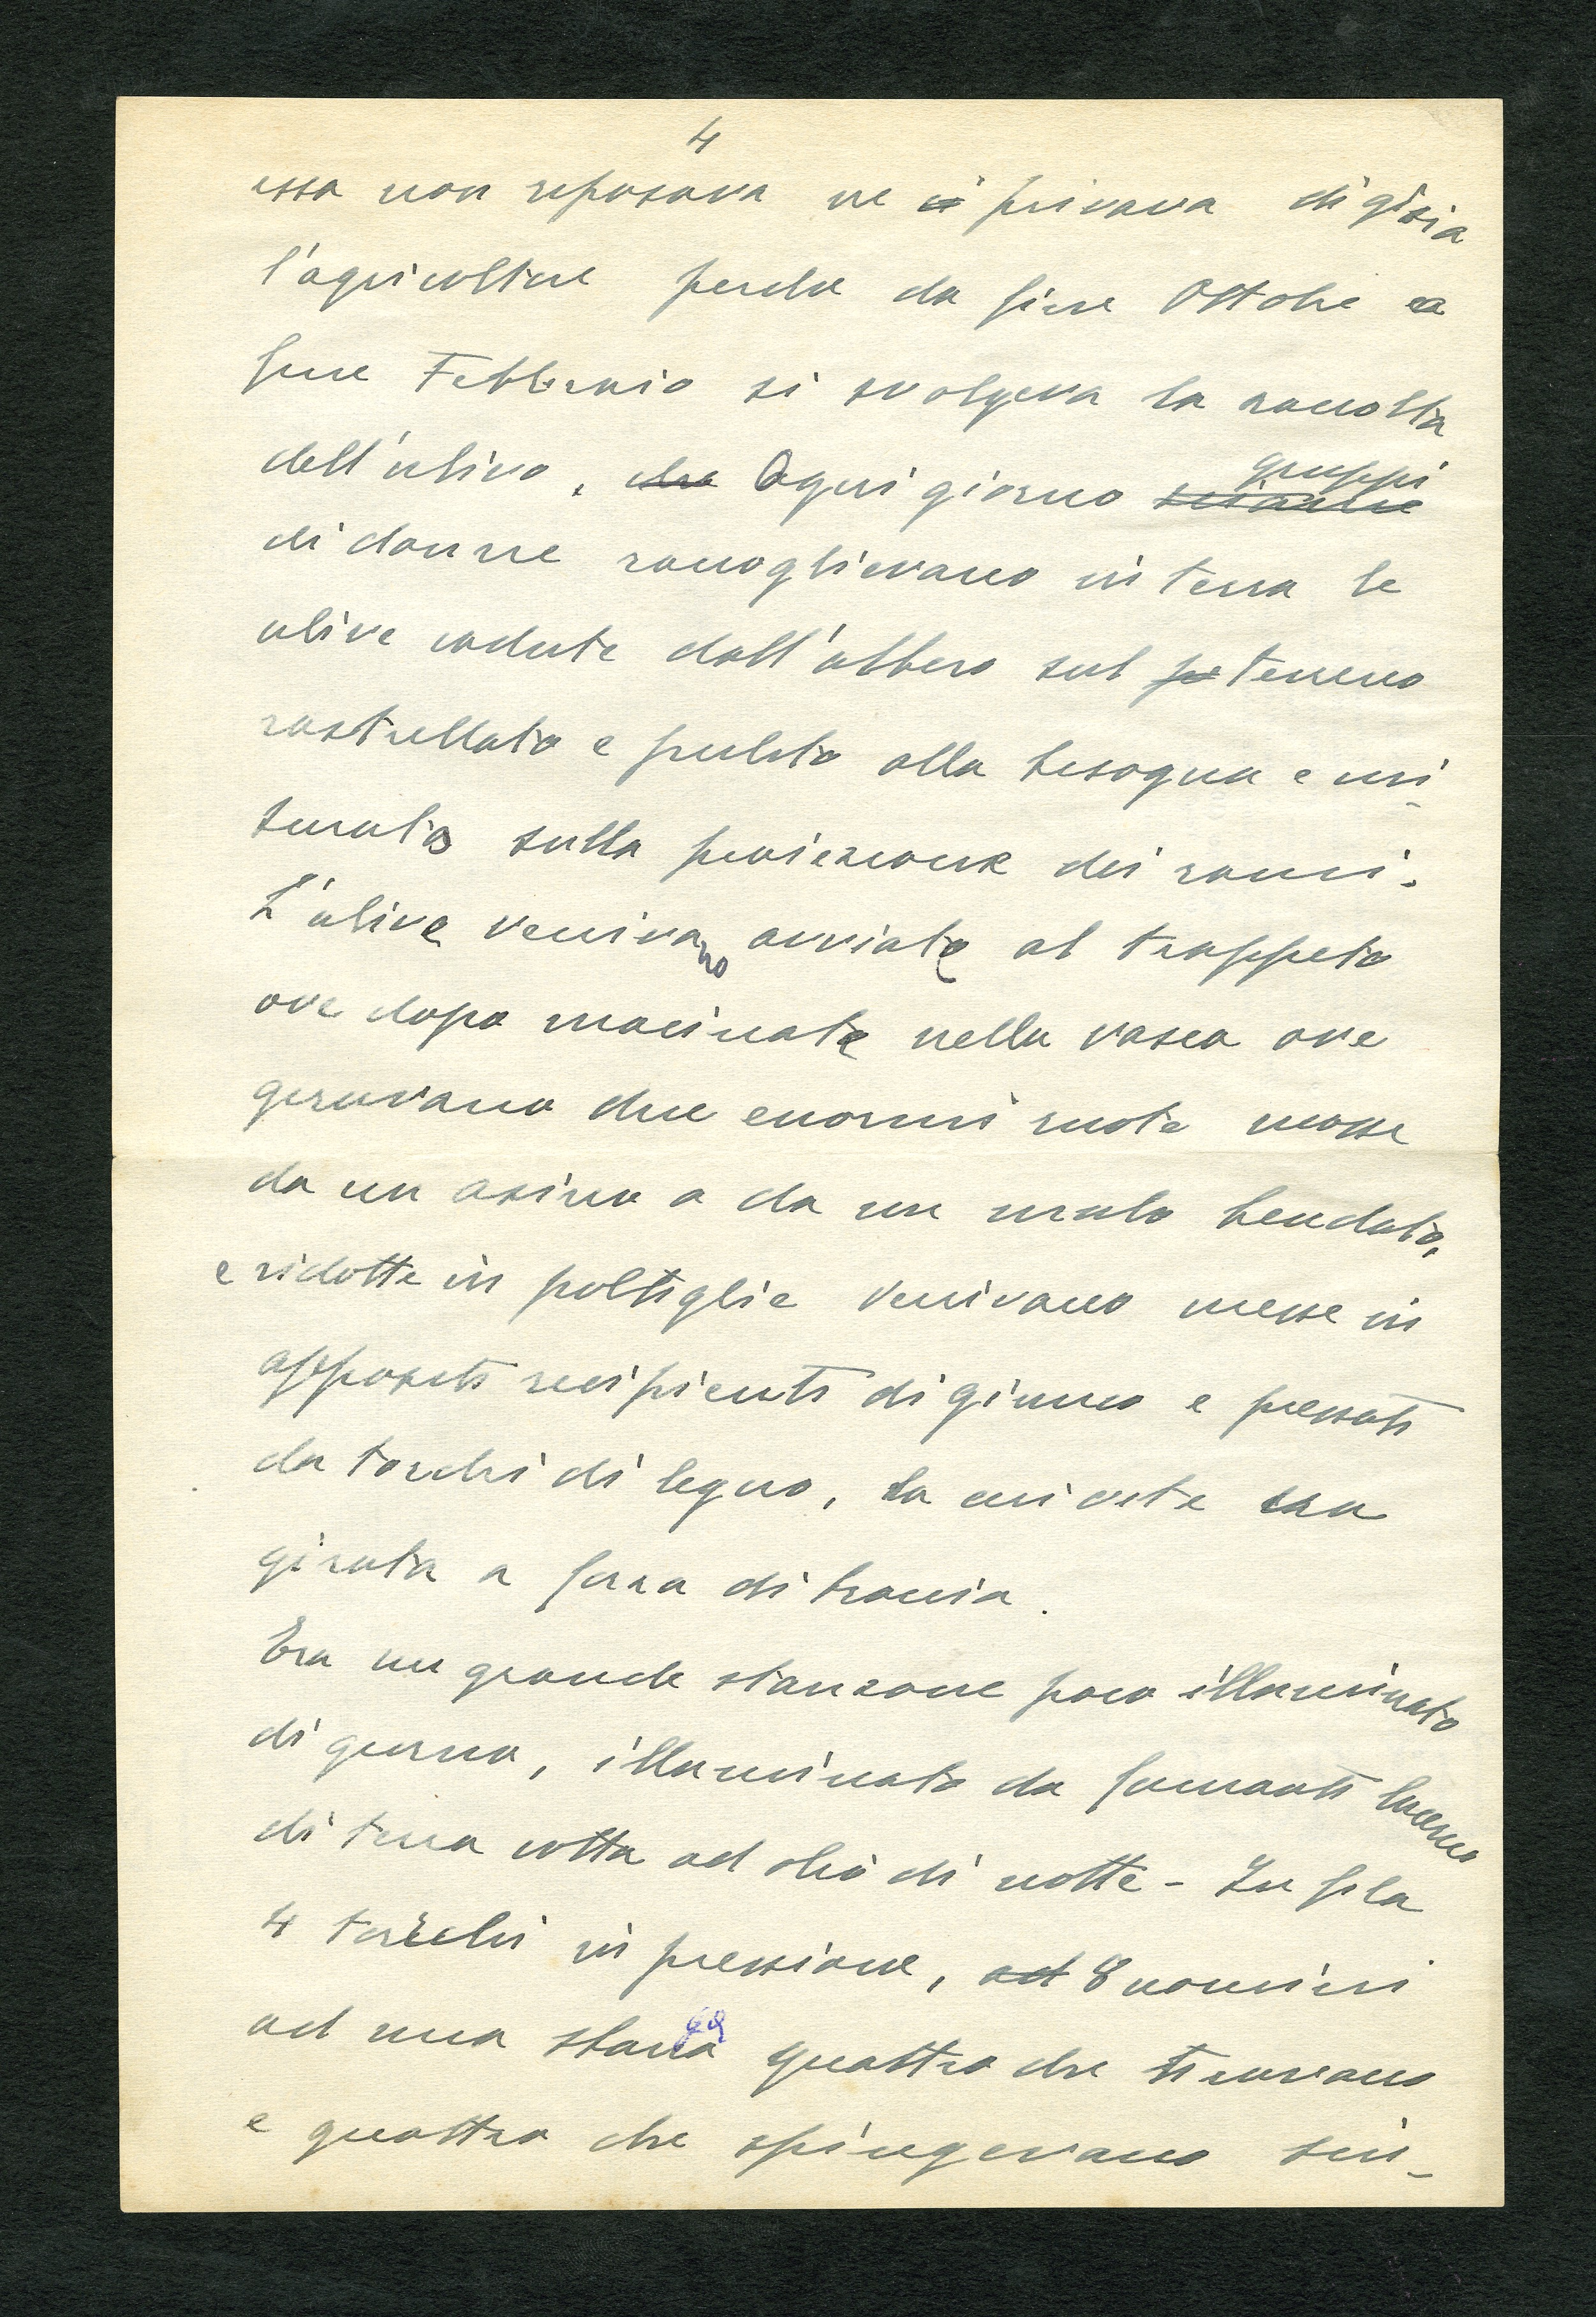 4
essa non riposava ne privava di gioia
l'agricoltore perchè da fine Ottobre a
fine Febbraio si svolgeva la raccolta
dell'ulivo, che Ogni giorno gruppi
di donne raccoglievano in terra le
ulive cadute dall'albero sul terreno
rastrellato e pulito alla bisogna e mi
surato sulla proiezione dei rami.
L'ulive venivano avviate al trappeto
ove dopo macinate nella vasca ove
giravano due enormi ruote mosse
da un asino o da un mulo bendato,
e ridotte in poltiglie venivano messe in
appositi recipienti di giunco e pressati
da torchi di legno, la cui vite era
girata a forza di braccia.
Era un grande stanzone poco illuminato
di giorno, illuminato da fumanti lucerne
di terra cotta ad olio di notte - In fila
4 torchi in pressione, ad 8 uomini
ad una stanga quattro che tiravano
e quattro che spingevano sin-